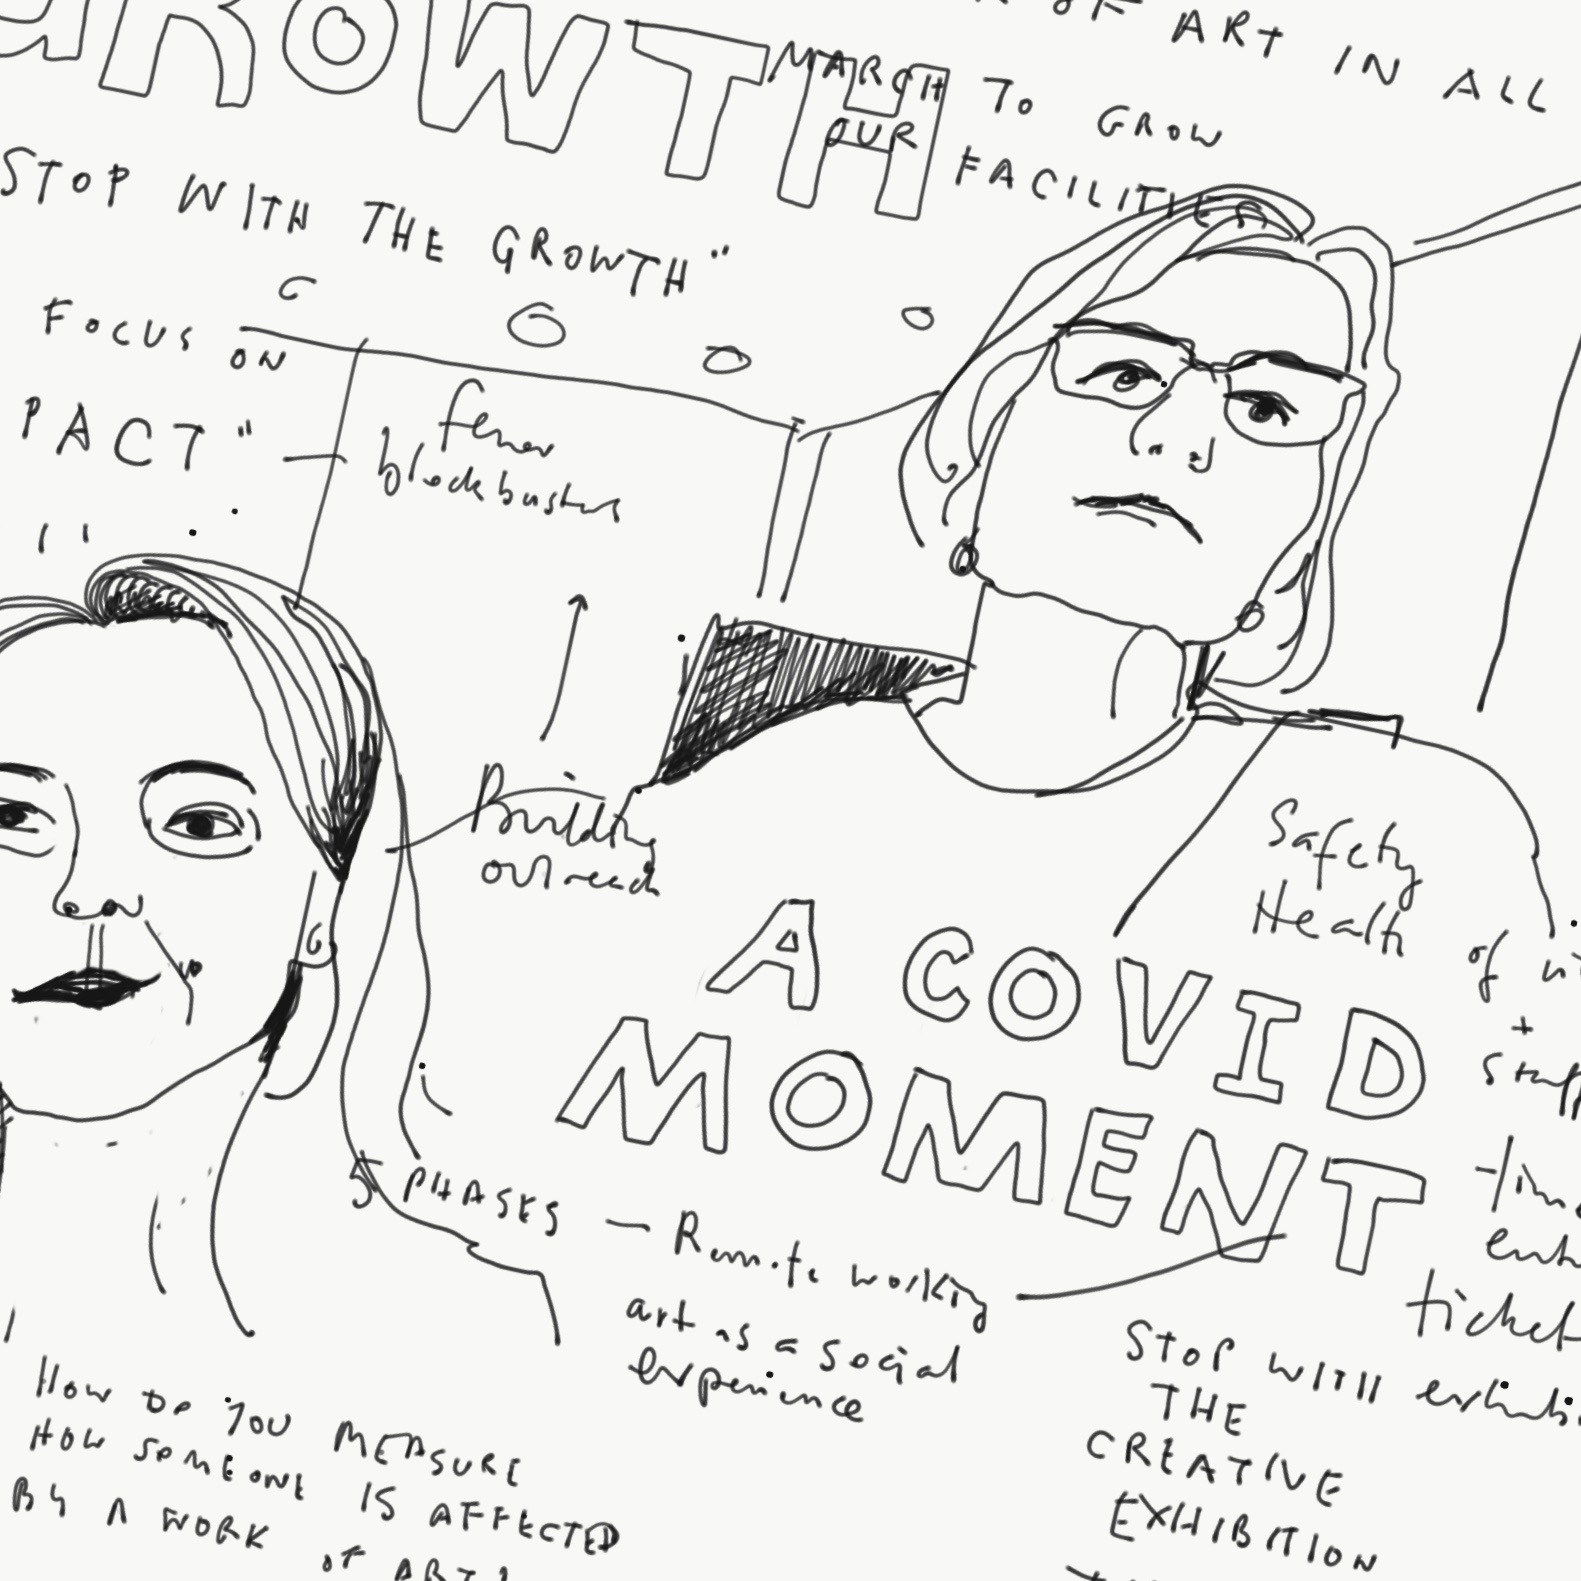 GROWTH
OF ART IN ALL
MARCH TO GROW
OUR FACILITIES
STOP WITH THE GROWTH"
FOCUS ON
PACT" —
fewer
blockbusters
Building
outreach
Safety
Health
of
+
A COVID
MOMENT
5 PHASES — Remote working
art as a social
experience
ticket
STOP WITH
THE
CREATIVE
EXHIBITION
HOW DO YOU MEASURE
HOW SOMEONE IS AFFECTED
BY A WORK
OF ART?